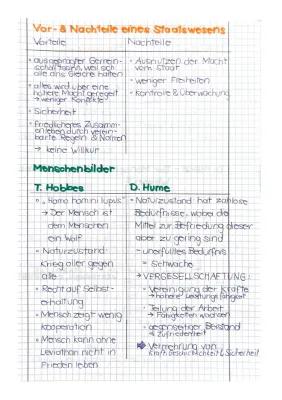 Vor- & Nachteile eines Staatswesens
Vorteile
Nachteile
• ausgeprägter Gemein-
schaftssinn, weil sich
alle ans Gleiche halten
• alles wird über eine
höhere Macht geregelt
→ weniger Konflikte
• Sicherheit
• friedlicheres Zusamm-
enleben durch verein-
barte Regeln & Normen
→ keine Willkür
• Ausnutzen der Macht
vom Staat
• weniger Freiheiten
• Kontrolle & Überwachung
Menschenbilder
T. Hobbes
• „Homo homini lupus"
→ Der Mensch ist
dem Menschen
ein Wolf
• Naturzustand:
Krieg aller gegen
alle
• Recht auf Selbst-
erhaltung
• Mensch zeigt wenig
Kooperation
• Mensch kann ohne
Leviathan nicht in
Frieden leben
D. Hume
• Naturzustand hat zahllose
Bedürfnisse, wobei die
Mittel zur Befriedigung dieser
aber zu gering sind
- unerfülltes Bedürfnis
= Schwäche
→ VERGESELLSCHAFTUNG:
• Vereinigung der Kräfte
→ höhere Leistungsfähigkeit
• Teilung der Arbeit
→ Fähigkeiten wachsen
• gegenseitiger Beistand
→ Zufriedenheit
→ Vermehrung von
Kraft, Geschicklichkeit & Sicherheit